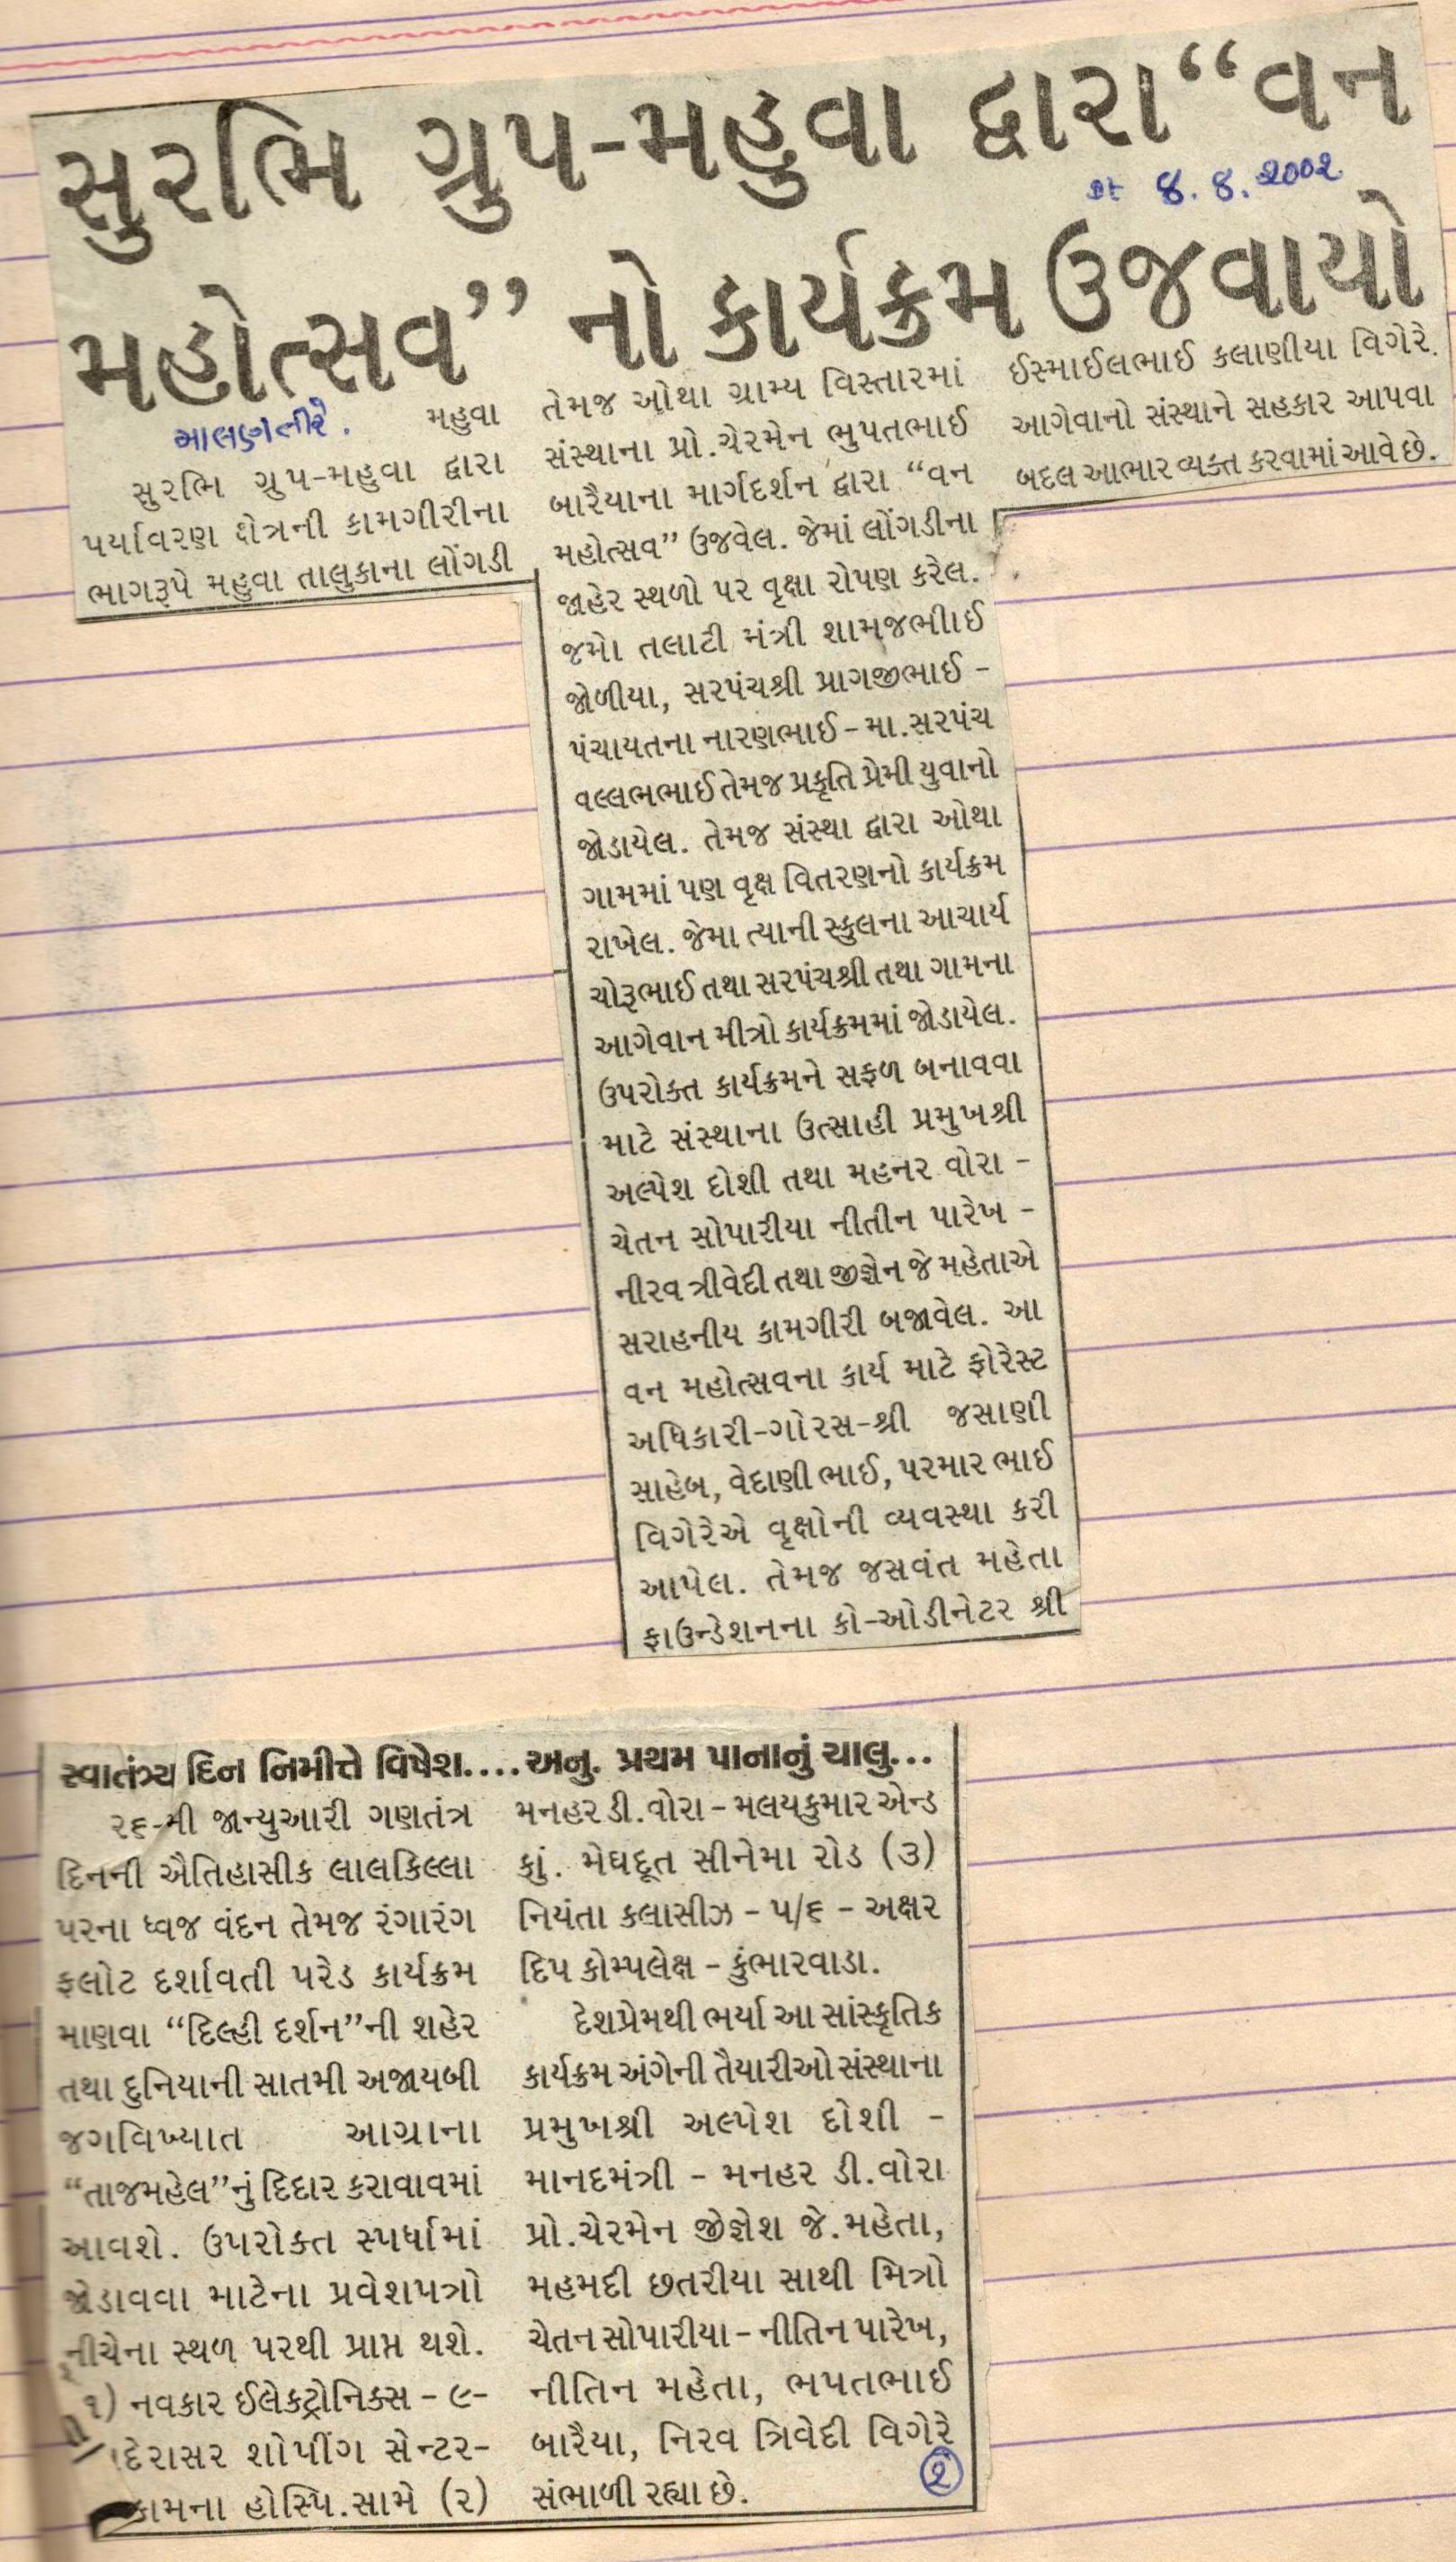 સુરભિ ગ્રુપ-મહુવા દ્વારા “વન
મહોત્સવ” નો કાર્યક્રમ ઉજવાયો
8.8.2002
મહુવા
સુરભિ ગ્રુપ-મહુવા દ્વારા
પર્યાવરણ ક્ષેત્રની કામગીરીના
ભાગરૂપે મહુવા તાલુકાના લોંગડી
તેમજ ઓથા ગ્રામ્ય વિસ્તારમાં
સંસ્થાના પ્રો.ચેરમેન ભુપતભાઈ
બારૈયાના માર્ગદર્શન દ્વારા “વન
મહોત્સવ” ઉજવેલ. જેમાં લોંગડીના
જાહેર સ્થળો પર વૃક્ષા રોપણ કરેલ.
જમેા તલાટી મંત્રી શામજભાીઈ
જોળીયા, સરપંચશ્રી પ્રાગજીભાઈ -
પંચાયતના નારણભાઈ - મા.સરપંચ
વલ્લભભાઈ તેમજ પ્રકૃતિ પ્રેમી યુવાનો
જોડાયેલ. તેમજ સંસ્થા દ્વારા ઓથા
ગામમાં પણ વૃક્ષ વિતરણનો કાર્યક્રમ
રાખેલ. જેમા ત્યાની સ્કુલના આચાર્ય
ચોરૂભાઈ તથા સરપંચશ્રી તથા ગામના
આગેવાન મીત્રો કાર્યક્રમમાં જોડાયેલ.
ઉપરોક્ત કાર્યક્રમને સફળ બનાવવા
માટે સંસ્થાના ઉત્સાહી પ્રમુખશ્રી
અલ્પેશ દોશી તથા મહનર વોરા -
ચેતન સોપારીયા નીતીન પારેખ -
નીરવ ત્રીવેદી તથા જીજ્ઞેન જે મહેતાએ
સરાહનીય કામગીરી બજાવેલ. આ
વન મહોત્સવના કાર્ય માટે ફોરેસ્ટ
અધિકારી-ગોરસ-શ્રી જસાણી
સાહેબ, વેદાણી ભાઈ, પરમાર ભાઈ
વિગેરેએ વૃક્ષોની વ્યવસ્થા કરી
આપેલ. તેમજ જસવંત મહેતા
ફાઉન્ડેશનના કો-ઓડીનેટર શ્રી
ઈસ્માઈલભાઈ કલાણીયા વિગેરે.
આગેવાનો સંસ્થાને સહકાર આપવા
બદલ આભાર વ્યક્ત કરવામાં આવે છે.
સ્વાતંત્ર્ય દિન નિમીત્તે વિષેશ.... અનુ. પ્રથમ પાનાનું ચાલુ...
૨૬-મી જાન્યુઆરી ગણતંત્ર
દિનની ઐતિહાસીક લાલકિલ્લા
પરના ધ્વજ વંદન તેમજ રંગારંગ
ફલોટ દર્શાવતી પરેડ કાર્યક્રમ
માણવા “દિલ્હી દર્શન”ની શહેર
તથા દુનિયાની સાતમી અજાયબી
જગવિખ્યાત આગ્રાના
“તાજમહેલ”નું દિદાર કરાવાવમાં
આવશે. ઉપરોક્ત સ્પર્ધામાં
જોડાવવા માટેના પ્રવેશપત્રો
નીચેના સ્થળ પરથી પ્રાપ્ત થશે.
૧) નવકાર ઈલેક્ટ્રોનિક્સ - ૯-
દેરાસર શોપીંગ સેન્ટર-
કામના હોસ્પિ.સામે (૨)
મનહર ડી.વોરા - મલયકુમાર એન્ડ
કું. મેઘદૂત સીનેમા રોડ (૩)
નિયંતા કલાસીઝ - ૫/૬ - અક્ષર
દિપ કોમ્પલેક્ષ - કુંભારવાડા.
દેશપ્રેમથી ભર્યા આ સાંસ્કૃતિક
કાર્યક્રમ અંગેની તૈયારીઓ સંસ્થાના
પ્રમુખશ્રી અલ્પેશ દોશી -
માનદમંત્રી - મનહર ડી.વોરા
પ્રો.ચેરમેન જીજ્ઞેશ જે.મહેતા,
મહમદી છતરીયા સાથી મિત્રો
ચેતન સોપારીયા - નીતિન પારેખ,
નીતિન મહેતા, ભપતભાઈ
બારૈયા, નિરવ ત્રિવેદી વિગેરે
સંભાળી રહ્યા છે.